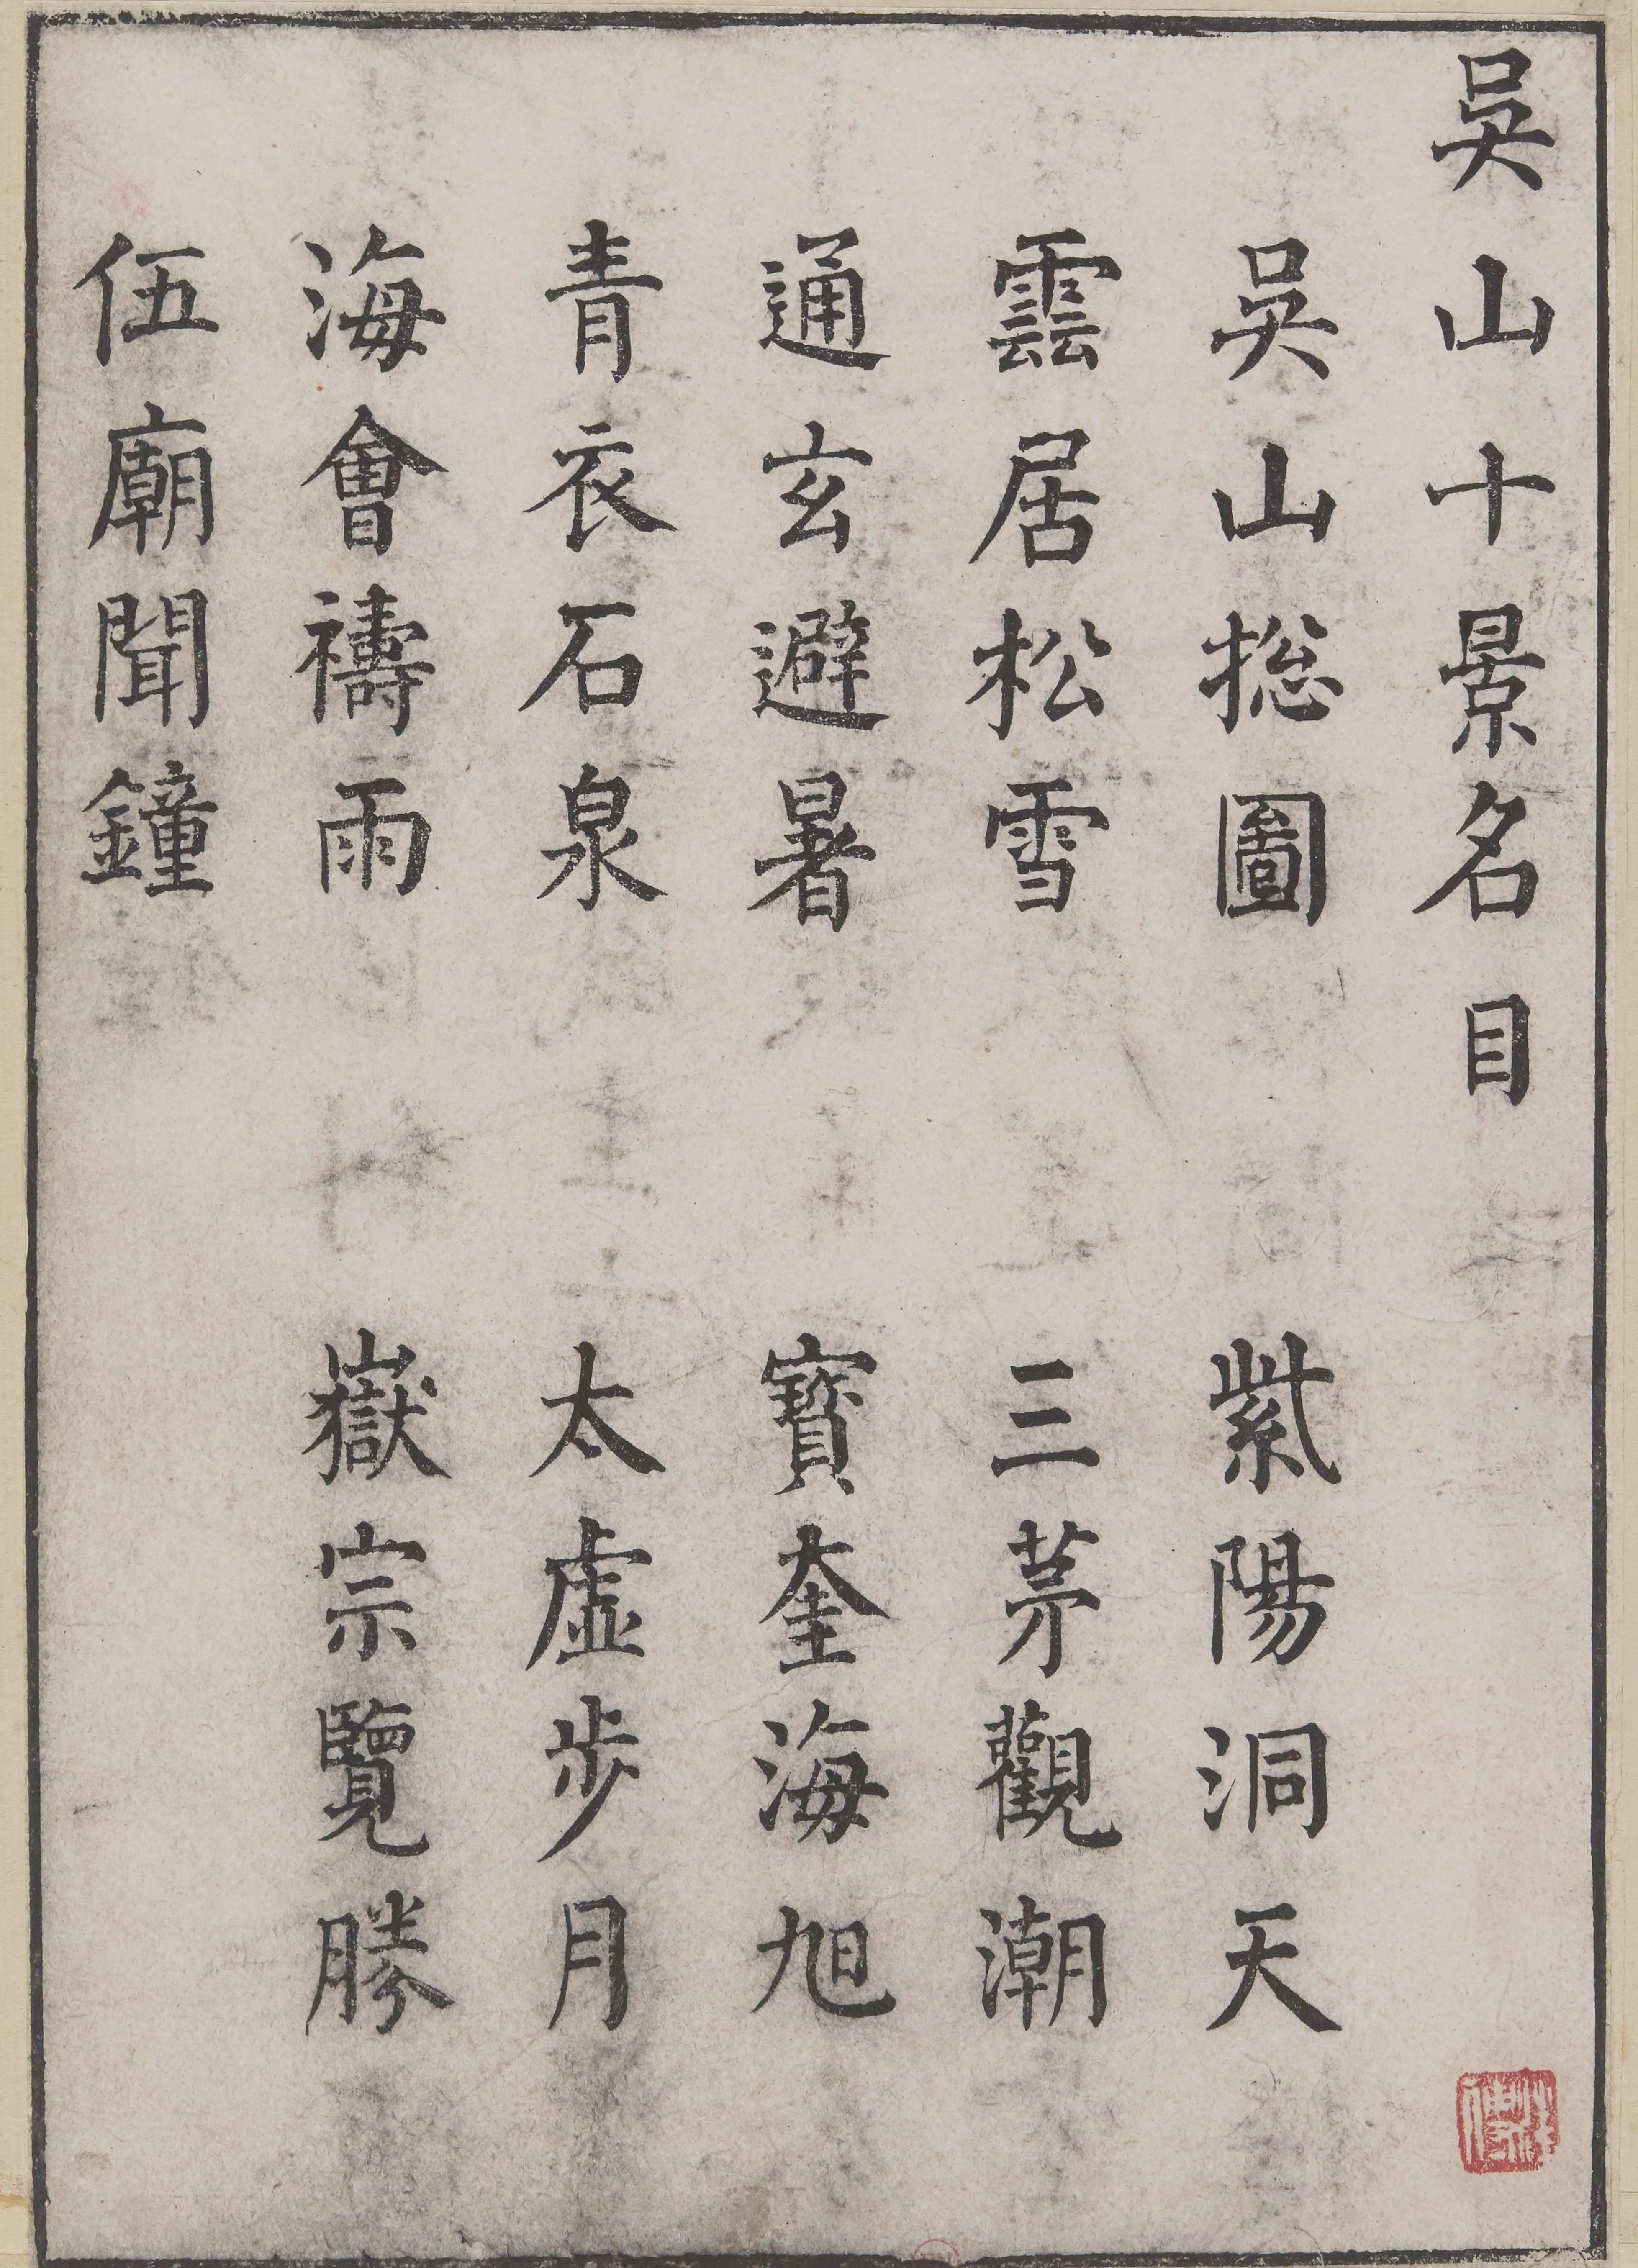 吳山十景名目
吳山捴圖
紫陽洞天
雲居松雪
三茅觀潮
通玄避暑
寳奎海旭
青衣石泉
太虛步月
海會禱雨
嶽宗覽勝
伍廟聞鐘